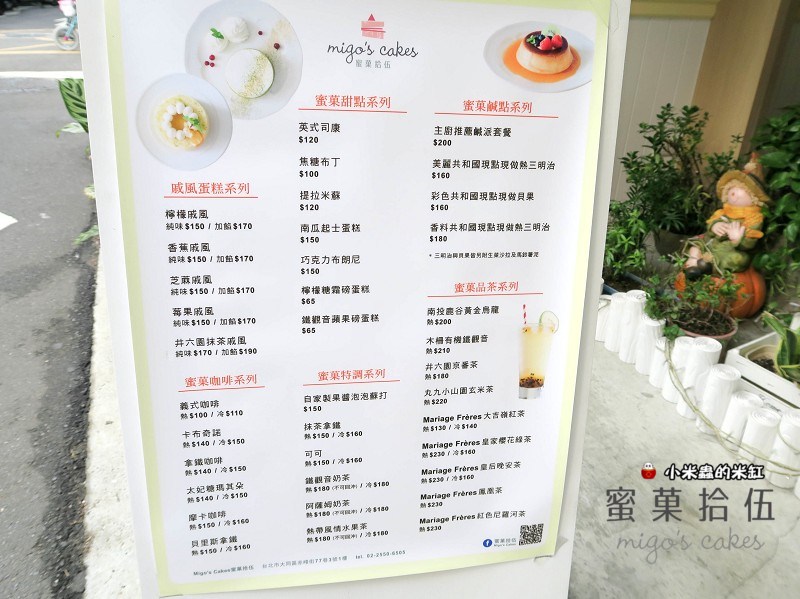 migo's cakes
蜜菓拾伍
戚風蛋糕系列
檸檬戚風
純味 $150 / 加餡 $170
香蕉戚風
純味 $150 / 加餡 $170
芝麻戚風
純味 $150 / 加餡 $170
莓果戚風
純味 $150 / 加餡 $170
丼六園抹茶戚風
純味 $170 / 加餡 $190
蜜菓咖啡系列
義式咖啡
熱 $100 / 冷 $110
卡布奇諾
熱 $140 / 冷 $150
拿鐵咖啡
熱 $140 / 冷 $150
太妃糖瑪其朵
熱 $140 / 冷 $150
摩卡咖啡
熱 $150 / 冷 $160
貝里斯拿鐵
熱 $150 / 冷 $160
蜜菓甜點系列
英式司康
$120
焦糖布丁
$100
提拉米蘇
$120
南瓜起士蛋糕
$150
巧克力布朗尼
$150
檸檬糖霜磅蛋糕
$65
鐵觀音蘋果磅蛋糕
$65
蜜菓特調系列
自家製果醬泡泡蘇打
$150
抹茶拿鐵
熱 $150 / 冷 $160
可可
熱 $150 / 冷 $160
鐵觀音奶茶
熱 $180 (不可回沖) / 冷 $180
阿薩姆奶茶
熱 $180 (不可回沖) / 冷 $180
熱帶風情水果茶
熱 $180 (不可回沖) / 冷 $180
蜜菓鹹點系列
主廚推薦鹹派套餐
$200
美麗共和國現點現做熱三明治
$160
彩色共和國現點現做貝果
$160
香料共和國現點現做熱三明治
$180
* 三明治與貝果皆另附生菜沙拉及馬鈴薯泥
蜜菓品茶系列
南投鹿谷黃金烏龍
熱 $200
木柵有機鐵觀音
熱 $210
丼六園京番茶
熱 $180
丸九小山園玄米茶
熱 $220
Mariage Frères 大吉嶺紅茶
熱 $130 / 冷 $140
Mariage Frères 皇家櫻花綠茶
熱 $230 / 冷 $160
Mariage Frères 皇后晚安茶
熱 $230 / 冷 $160
Mariage Frères 鳳凰茶
熱 $230
Mariage Frères 紅色尼羅河茶
熱 $230
蜜菓拾伍
Migo's Cakes蜜菓拾伍 台北市大同區赤峰街77巷3號1樓 tel. 02-2559-6505
小米蟲的米缸
蜜菓拾伍
migo's cakes